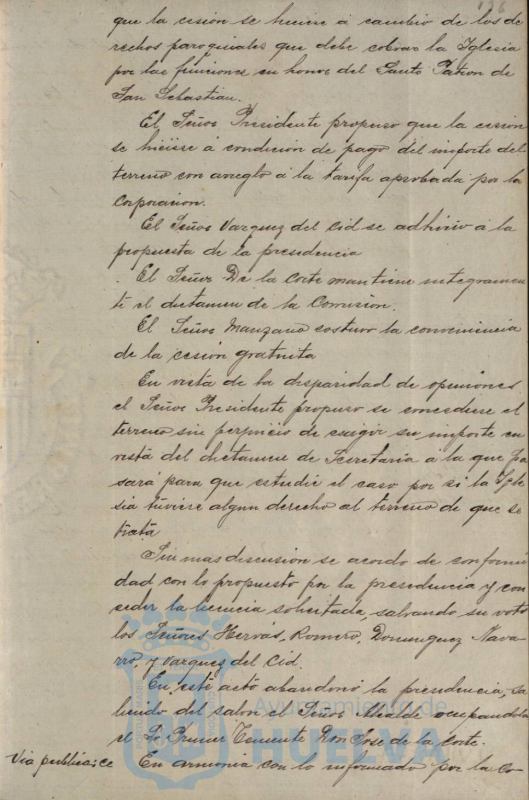 126
que la cesión se hiciere á cambio de los de
rechos paroquiales que debe cobrar la Iglesia
por las funciones en honor del Santo Patron de
San Sebastian.
El Señor Presidente propuso que la cesion
se hiciese á condición de pago del importe del
terreno con arreglo á la tarifa aprobada por la
Corporacion.
El Señor Vazquez del Cid se adhirio á la
propuesta de la presidencia
El Señor De la Corte mantiene integramen
te el dictamen de la Comision.
El Señor Manzano sostuvo la conveniencia
de la cesión gratuita
En vista de la disparidad de opiniones
el Señor Presidente propuso se concediese el
terreno sin perjuicio de exigir su importe en
vista del dictamen de Secretaria á la que pa
sará para que estudie el caso por si la Igle
sia tuviere algun derecho al terreno de que se
trata
Sin mas discusion se acordo de conformi
dad con lo propuesto por la presidencia y con
ceder la licencia solicitada, salvando su voto
los Señores Hervás, Romero, Dominguez Nava
rro, y Vazquez del Cid.
En este acto abandonó la presidencia, sa
liendo del salon el Señor Alcalde ocupandola
el Sr. Primer Teniente Don Jose de la Corte.
Via publica: ce
En armonia con lo informado por la Co-
Ayuntamiento de
HUELVA